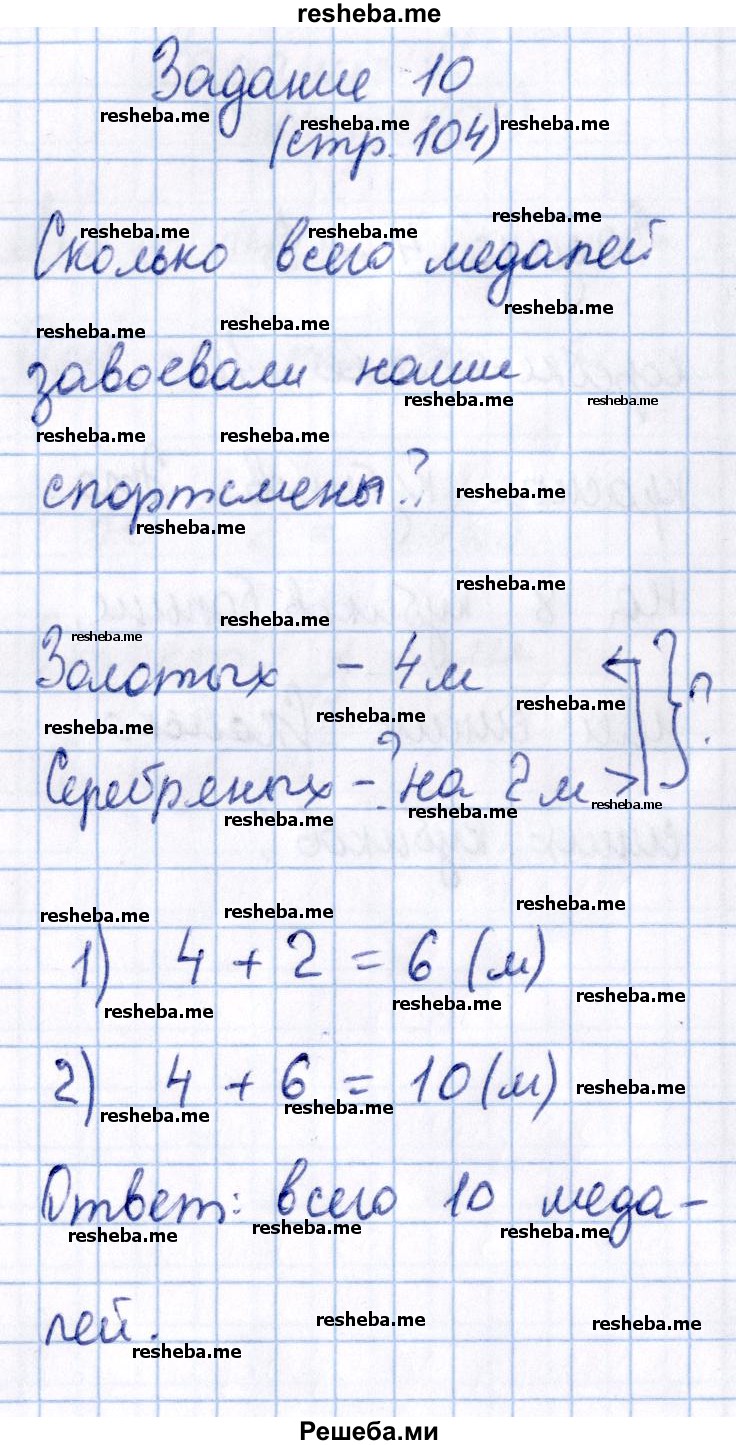 resheba.me
Задание 10
resheba.me resheba.me resheba.me
(стр. 104)
resheba.me resheba.me resheba.me
Сколько всего медалей
resheba.me
resheba.me resheba.me
завоевали наши
resheba.me resheba.me
resheba.me resheba.me
спортсмены?
resheba.me
resheba.me
resheba.me
resheba.me resheba.me
Золотых - 4 м
resheba.me resheba.me resheba.me
Серебряных - ? на 2 м > } ?
resheba.me resheba.me resheba.me
resheba.me resheba.me resheba.me
1) 4 + 2 = 6 (м)
resheba.me resheba.me resheba.me
2) 4 + 6 = 10 (м)
resheba.me resheba.me resheba.me
Ответ: всего 10 меда-
resheba.me resheba.me resheba.me
лей.
resheba.me resheba.me resheba.me
Решеба.ми